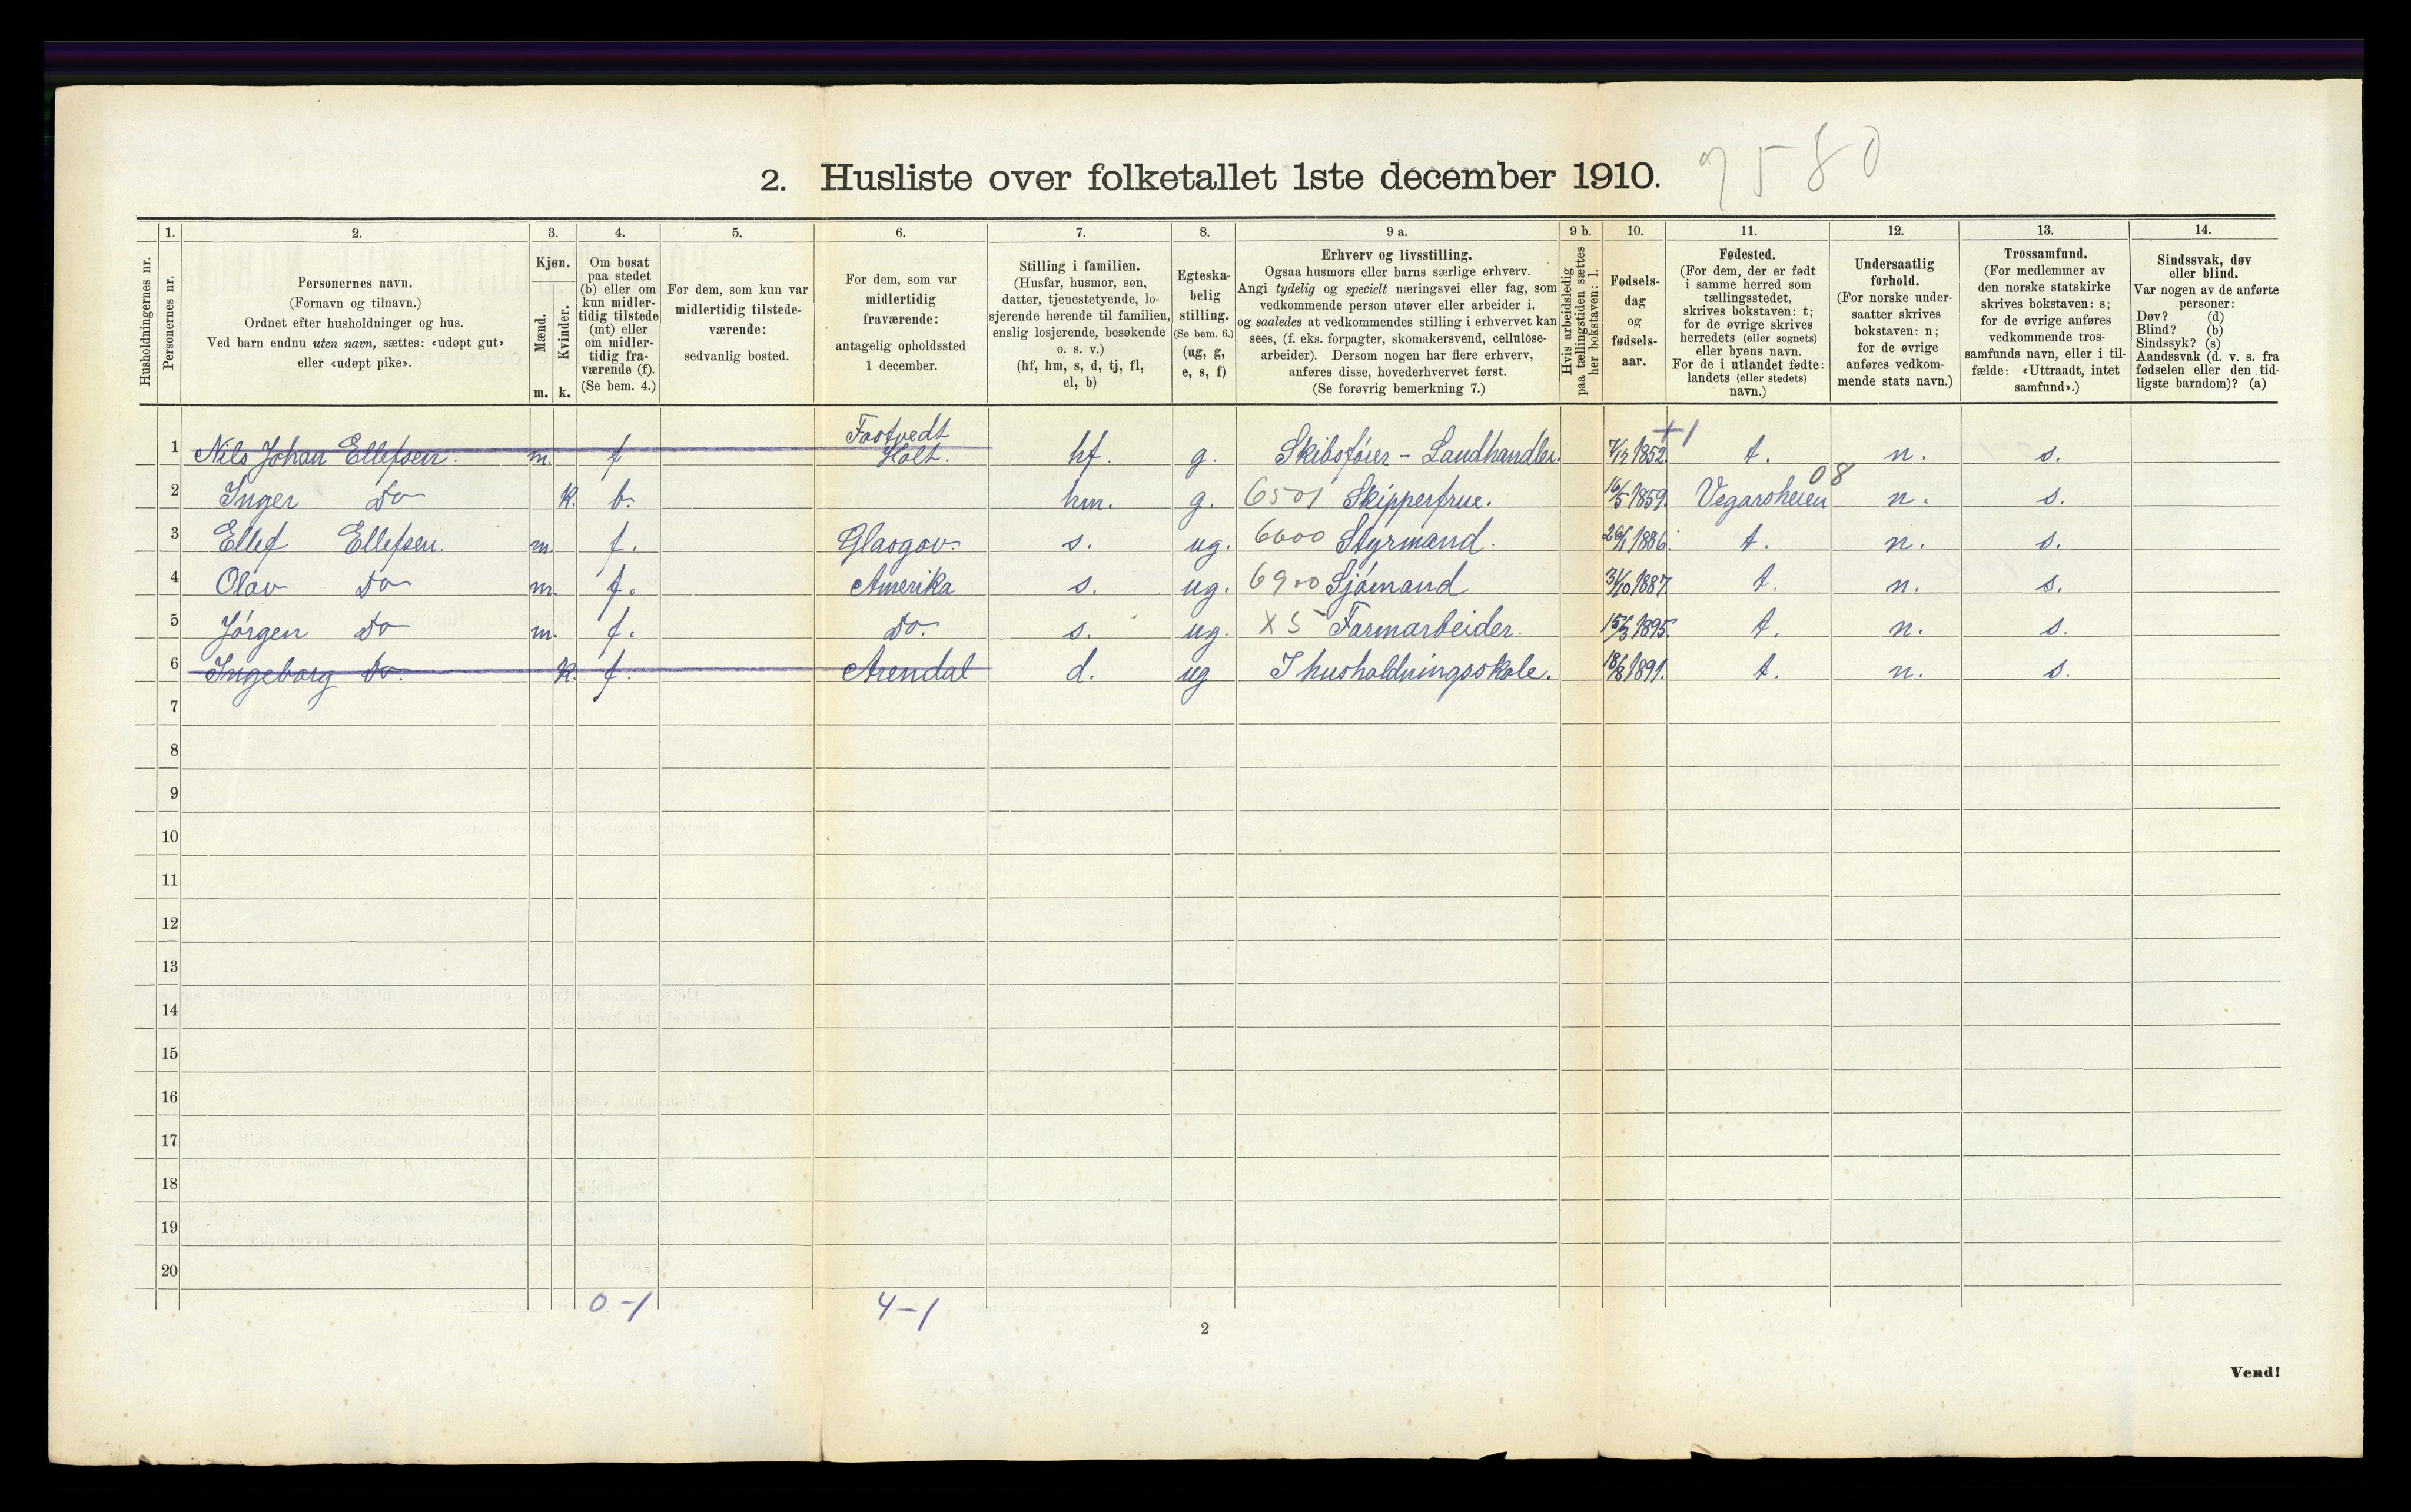 2. Husliste over folketallet 1ste december 1910.
7580
Husholdningernes nr.
1.
Personernes nr.
2.
Personernes navn.
(Fornavn og tilnavn.)
Ordnet efter husholdninger og hus.
Ved barn endnu uten navn, sættes: «udøpt gut»
eller «udøpt pike».
3.
Kjøn.
Mænd.
Kvinder.
m. k.
4.
Om bosat
paa stedet
(b) eller om
kun midler-
tidig tilstede
(mt) eller
om midler-
tidig fra-
værende (f).
(Se bem. 4.)
5.
For dem, som kun var
midlertidig tilstede-
værende:
sedvanlig bosted.
6.
For dem, som var
midlertidig
fraværende:
antagelig opholdssted
1 december.
7.
Stilling i familien.
(Husfar, husmor, søn,
datter, tjenestetyende, lo-
sjerende hørende til familien,
enslig losjerende, besøkende
o. s. v.)
(hf, hm, s, d, tj, fl,
el, b)
8.
Egteska-
belig
stilling.
(Se bem. 6.)
(ug, g,
e, s, f)
9 a.
Erhverv og livsstilling.
Ogsaa husmors eller barns særlige erhverv.
Angi tydelig og specielt næringsvei eller fag, som
vedkommende person utøver eller arbeider i,
og saaledes at vedkommendes stilling i erhvervet kan
sees, (f. eks. forpagter, skomakersvend, cellulose-
arbeider). Dersom nogen har flere erhverv,
anføres disse, hovederhvervet først.
(Se forøvrig bemerkning 7.)
9 b.
Hvis arbeidsledig
paa tællingstiden sættes
her bokstaven: l.
10.
Fødsels-
dag
og
fødsels-
aar.
11.
Fødested.
(For dem, der er født
i samme herred som
tællingsstedet,
skrives bokstaven: t;
for de øvrige skrives
herredets (eller sognets)
eller byens navn.
For de i utlandet fødte:
landets (eller stedets)
navn.)
12.
Undersaatlig
forhold.
(For norske under-
saatter skrives
bokstaven: n;
for de øvrige
anføres vedkom-
mende stats navn.)
13.
Trossamfund.
(For medlemmer av
den norske statskirke
skrives bokstaven: s;
for de øvrige anføres
vedkommende tros-
samfunds navn, eller i til-
fælde: «Uttraadt, intet
samfund».)
14.
Sindssvak, døv
eller blind.
Var nogen av de anførte
personer:
Døv? (d)
Blind? (b)
Sindssyk? (s)
Aandssvak (d. v. s. fra
fødselen eller den tid-
ligste barndom)? (a)
Fostvedt +1
1 Nils Johan Ellefsen. m. f Holt. hf. g. Skibsfører - Landhandler. 7/12 1852. t. n. s.
2 Inger Do k. b. hm. g. 6501 Skipperfrue. 16/5 1859. Vegarsheien 08 n. s.
3 Ellef Ellefsen. m. f. Glasgov. s. ug. 6600 Styrmand. 1886. t. n. s.
4 Olav Do m. f. Amerika s. ug. 6900 Sjømand 31/10 1887. t. n. s.
5 Jørgen Do m. f. Do. s. ug. X5 Farmarbeider. 15/3 1895. t. n. s.
6 Ingeborg Do. k. f. Arendal d. ug I husholdningsskole. 18/8 1891. t. n. s.
7
8
9
10
11
12
13
14
15
16
17
18
19
20
0-1 4-1
2
Vend!